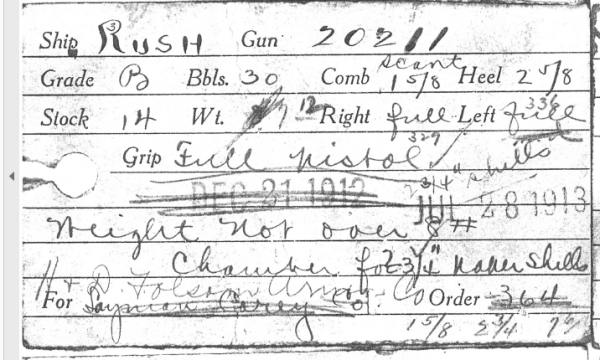 Ship RUSH Gun 20211
Grade B Bbls. 30 Comb scant 1 5/8 Heel 2 5/8
Stock 14 Wt. 7 12 Right full Left full 336
Grip Full Pistol 329
2 3/4" Shells
DEC 21 1912 JUL 28 1913
Weight Not over 8#
Chamber for 2 3/4" Paper Shells
H & D Folsom Arms Co
For Co. Order 364
1 5/8 2 3/4